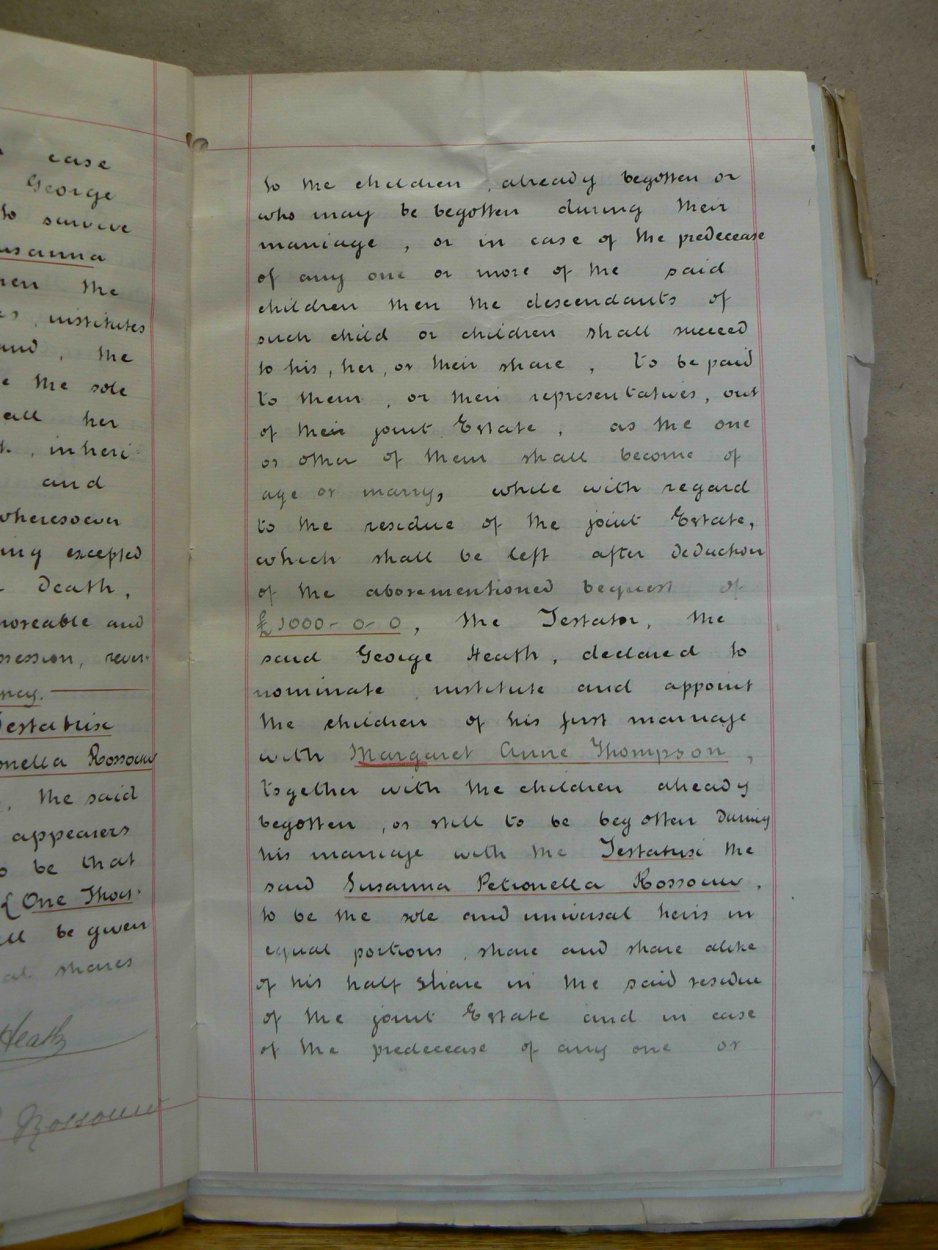 case
George
to survive
usanna
the
institutes
and, the
e the sole
all her
inheri-
and
wheresoever
ing excepted
Death,
moveable and
session, rever-
ncy.
Testatrix
onella Rossouw
, the said
appearers
to be that
{One Thou-
ll be given
al shares
Heath
Rossouw
to the children, already begotten or
who may be begotten during their
marriage, or in case of the predecease
of any one or more of the said
children then the descendants of
such child or children shall succeed
to his, her, or their share, to be paid
to them, or their representatives, out
of their joint Estate, as the one
or other of them shall become of
age or marry, while with regard
to the residue of the joint Estate,
which shall be left after deduction
of the abovementioned bequest of
£1000-0-0, the Testator, the
said George Heath, declared to
nominate, institute and appoint
the children of his first marriage
with Margaret Anne Thompson,
together with the children already
begotten, or still to be begotten during
his marriage with the Testatrix the
said Susanna Petronella Rossouw,
to be the sole and universal heirs in
equal portions, share and share alike
of his half share in the said residue
of the joint Estate and in case
of the predecease of any one or